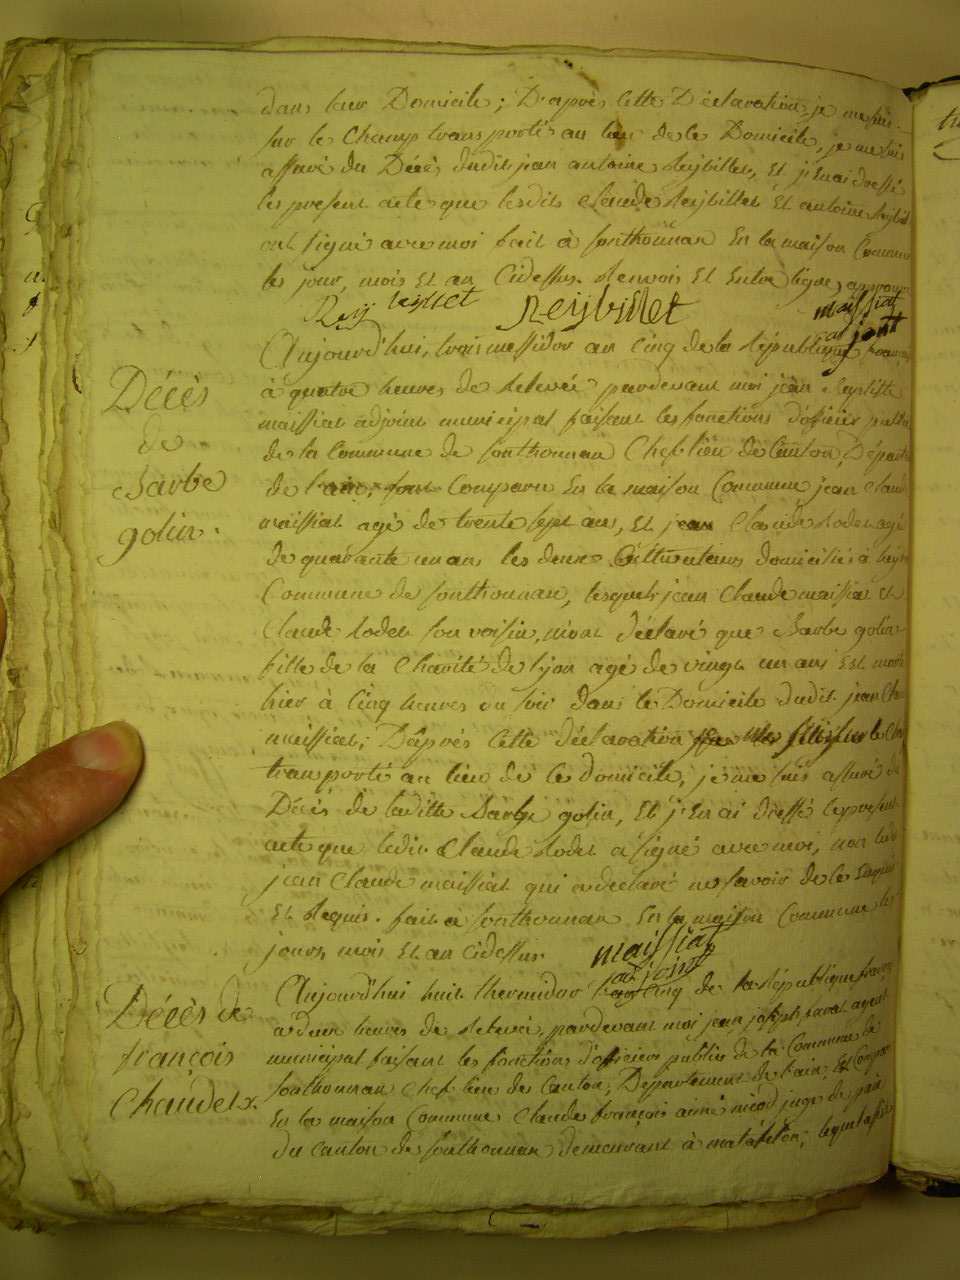 dans leur Domicile; D'après cette Déclaration, je me suis
sur le Champ transporté au lieu de ce Domicile, je me suis
assuré du Décès dudit jean antoine Reybillet, Et j'En ai dressé
le present acte que lesdits claude Reybillet Et antoine Reybil
ont signé avec moi fait à sonthonnax En la maison Commune
les jour, mois Et an Cidessus. Renvois Et Entre ligne approuv
Reybillet maissiat
adjoint
Décès
de
Barbe
golin.
Aujourd'hui, trois messidor an Cinq de la République francai
à quatre heures de Relevée pardevant moi jean Baptiste
maissiat adjoint municipal faisant les fonctions d'officier public
de la Commune de sonthonnax Chef lieu de Canton, Départe
de l'ain, sont Comparu En la maison Commune jean Claude
maissiat agé de trente sept ans, Et jean Claude Rodet agé
de quarante un ans les deux Cultivateurs domiciliés à
Commune de sonthonnax, lesquels jean Claude maissiat Et
Claude Rodet son voisin, m'ont déclaré que Barbe golin
fille de la Charité de lyon agé de vingt un ans Est morte
hier à Cinq heures du soir dans le Domicile dudit jean Cla
maissiat; D'après Cette déclaration je me suis sur le Cha
transporté au lieu de ce domicile, je me suis assuré du
Décès de laditte Barbe golin, Et j'En ai dressé le present
acte que ledit Claude Rodet a signé avec moi, non ledit
jean Claude maissiat qui a declaré ne savoir de ce Enquis
Et Requis. fait à sonthonnax En la maison Commune les
jours, mois Et an cidessus.
maissiat
adjoint
Décès de
françois
Chaudet.
Aujourd'hui huit thermidor an Cinq de la République franca
a deux heures de Relevée, pardevant moi jean joseph agent
municipal faisant les fonctions d'officier public de la Commune de
sonthonnax Chef lieu de Canton, Département de l'ain, Est Compar
En la maison Commune Claude françois aimé nicod juge de paix
du Canton de sonthonnax demeurant à matafelon; lequel